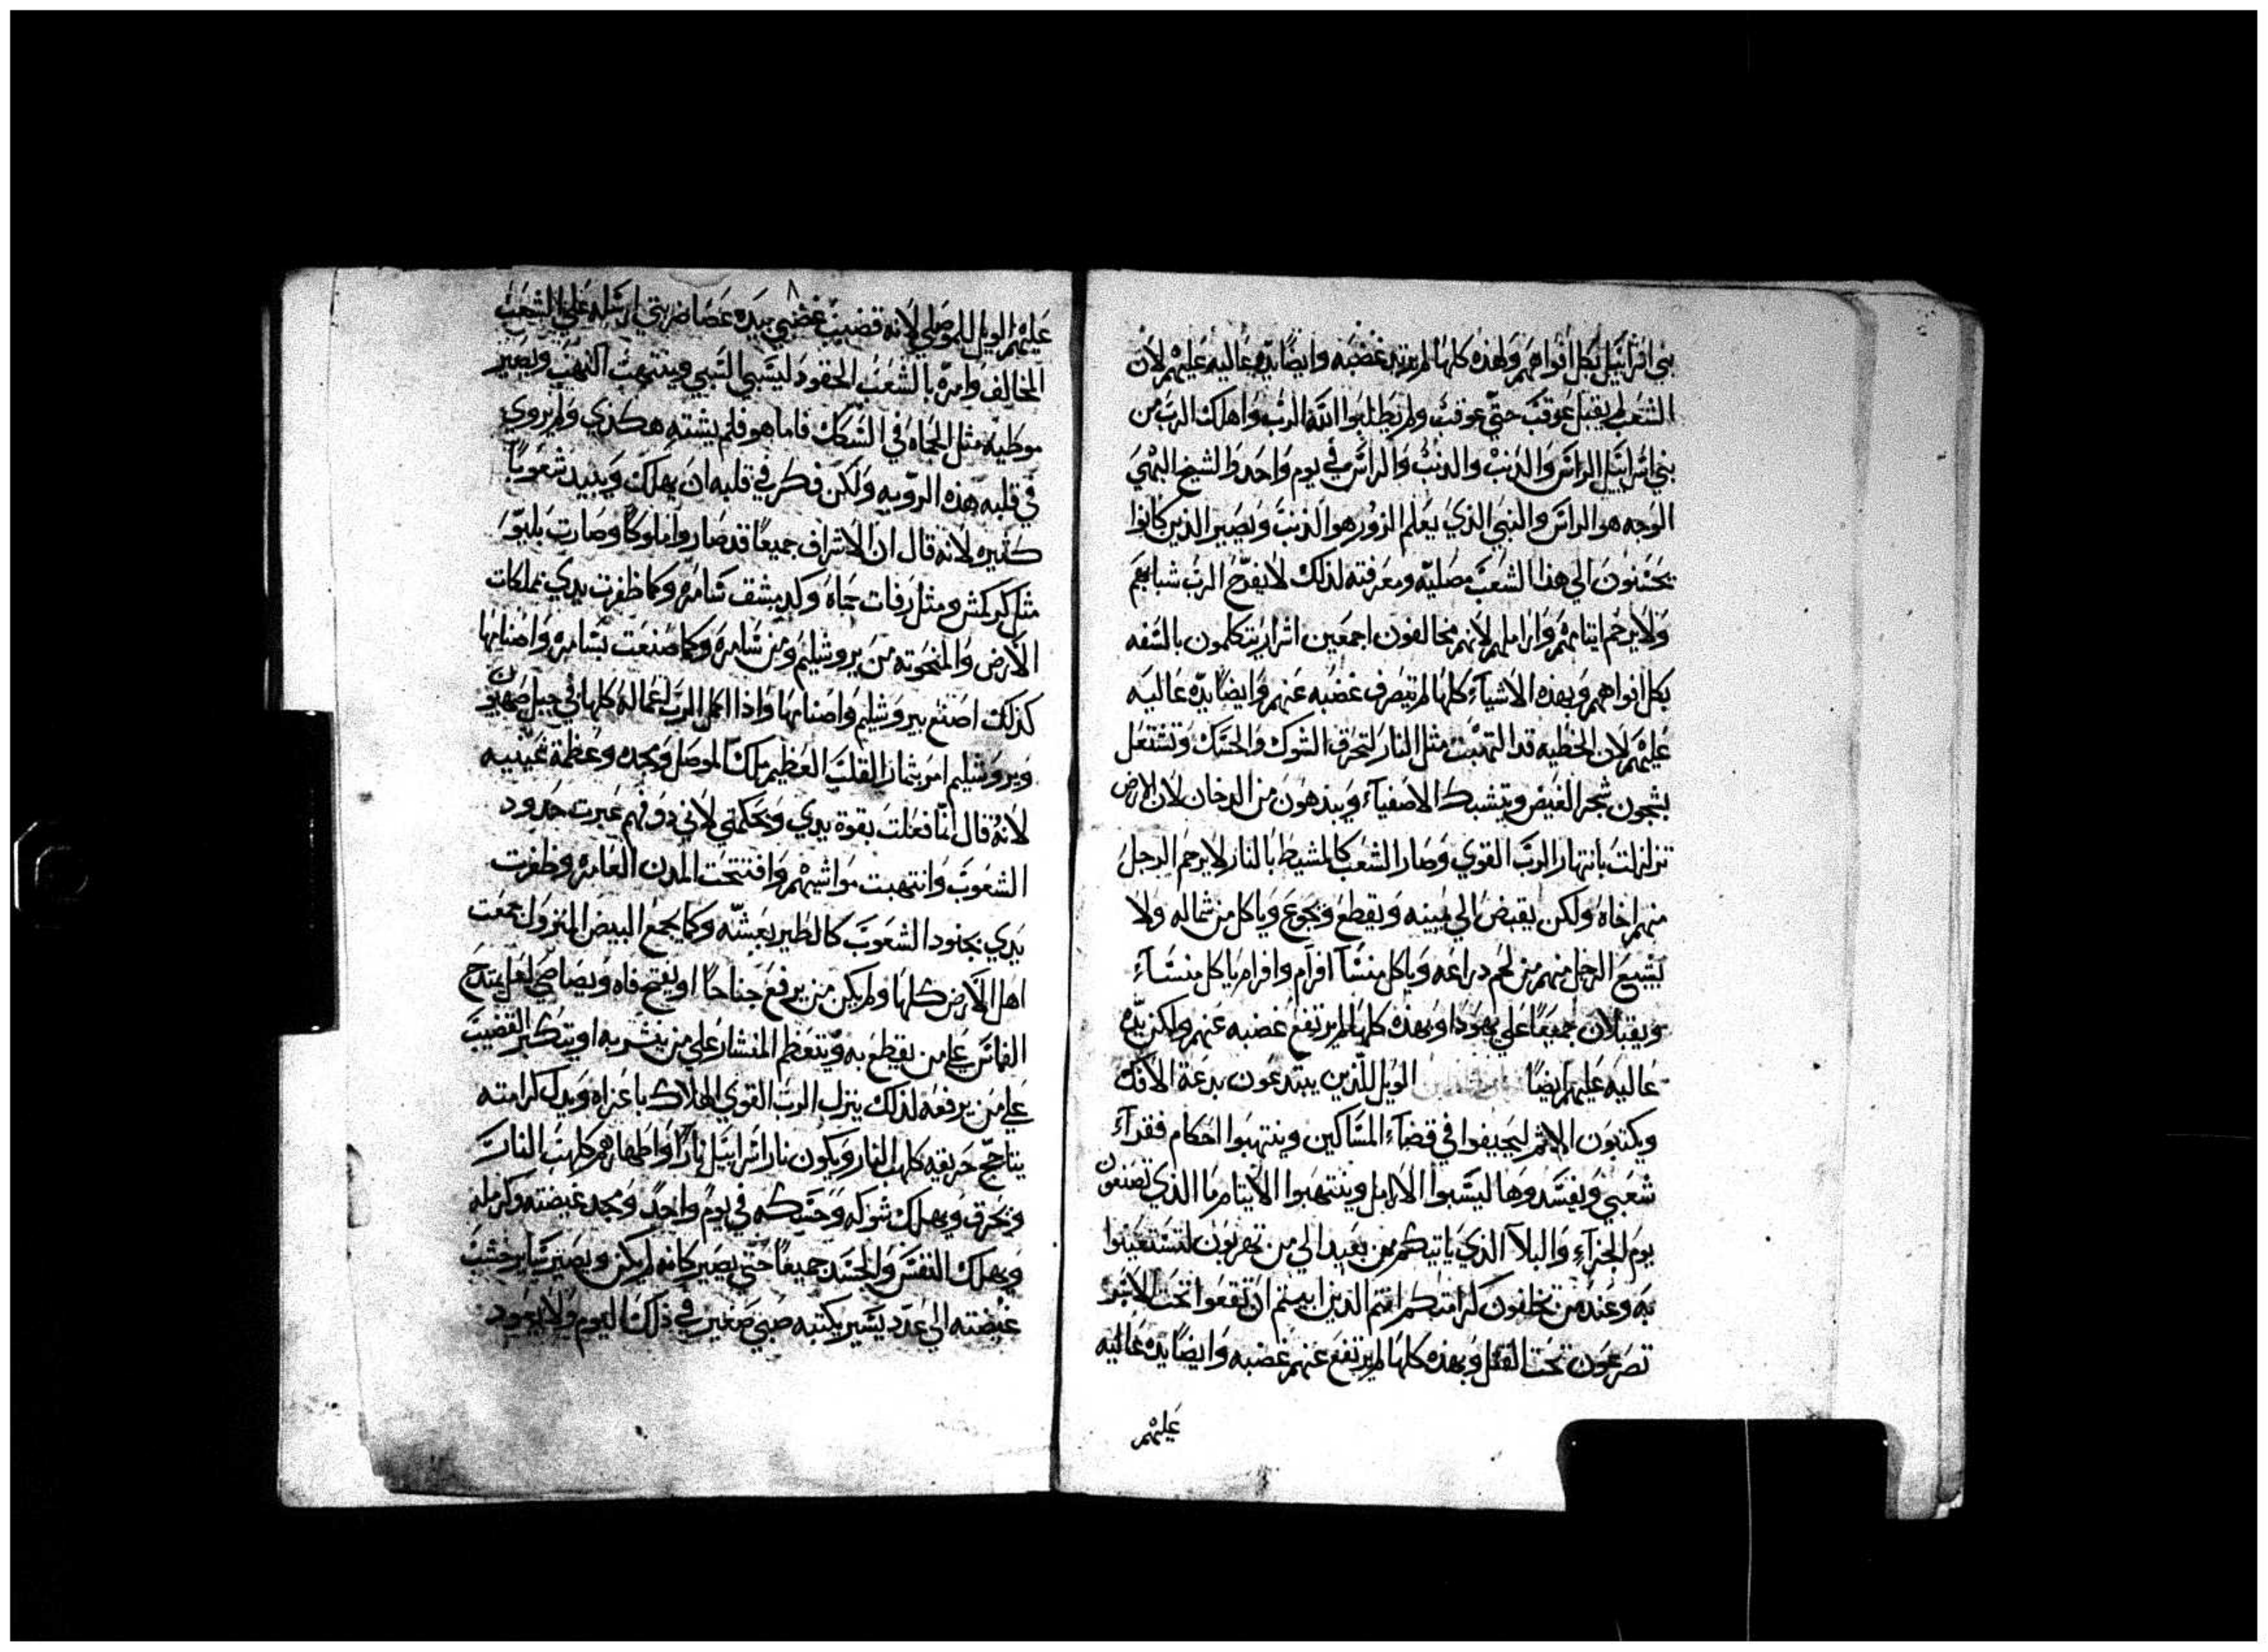 بني اسرائيل بكل افواههم ولهذه كلها لم يرتد غضبه وايضًا يده عاليه عليهم لان
الشعب لم يقبل عوقب حتي عوقب ولم يطلبوا الله الرب واهلك الرب من
بني اسرائيل الراس والذنب والذنب والراس في يوم واحد والشيخ البهي
الوجه هو الراس والنبي الذي يعلم الزور هو الذنب ويصير الذين كانوا
يحسنون الي هذا الشعب مصليه ومعرفته لذلك لا يفرح الرب شبابهم
ولا يرحم ايتامهم واراملهم لانهم مخالفون اجمعين اشرار يتكلمون بالسفه
بكل افواههم وبهذه الاشيآء كلها لم ينصرف غضبه عنهم وايضًا يده عاليه
عليهم لان الخطيه قد التهبت مثل النار لتحرق الشوك والحسك وتشتعل
بشجون شجر الغيض ويتشبك الاصفيآء ويندهون من الدخان لان الارض
تزلزلت بانتهار الرب القوي وصار الشعب كالمشيط بالنار لا يرحم الرجل
منهم اخاه ولكن يقبض الي يمينه ويقطع ويجوع وياكل من شماله ولا
يشبع الرجل منهم من لحم دراعه وياكل منسآ افرام وافرام ياكل منسآء
ويقبلان جميعًا علي يهودا وبهذه كلها لم يرتفع غضبه عنهم ولكن يده
عاليه عليهم ايضًا الويل للذين يبتدعون بدعة الافك
ويكتبون الاثم ليحيفوا في قضآء المساكين وينتهبوا احكام فقرآء
شعبي ويفسدوها ليسبوا الارامل وينتهبوا الايتام ما الذي تصنعون
يوم الجزآء والبلآ الذي ياتيكم من بعيد الي من تهربون لتستعينوا
به وعند من تخلفون كرامتكم انتم الذين ابيتم ان تقعوا تحت الاسر
تصرعون تحت القتل وبهذه كلها لم يرتفع عنهم غضبه وايضًا يده عاليه
عليهم
٨
عليهم الويل للموصلي لانه قضيب غضبي بيده عصا ضربتي ارسله علي الشعب
المخالف وامره بالشعب الحقود ليسبي السبي وينتهب النهب ويصير
موطيه مثل الحماه في السكك فاما هو فلم يشته هكدي ولم يروي
في قلبه هذه الرويه ولكن فكر في قلبه ان يهلك ويبيد شعوبًا
كثيره لانه قال ان الاشراف جميعًا قد صاروا ملوكًا وصارت يلبوا
مثل كركمش ومثل رفات حماه وكدمشق سامره وكما ظفرت يدي بمملكات
الارض والمنحوته من يروشليم ومن سامره وكما صنعت بسامره واصنامها
كذلك اصنع بيروشليم واصنامها واذا اكمل الرب اعماله كلها في جبل صهيون
ويروشليم امر بثمار القلب العظيم ملك الموصل ومجده وعظمة عينيه
لانه قال انا فعلت بقوة يدي وبحكمتي لاني ذو فهم عبرت حدود
الشعوب وانتهبت مواشيهم وافتتحت المدن العامره وظفرت
يدي بجنود الشعوب كالطير بعشه وكما يجمع البيض المنزول جمعت
اهل الارض كلها ولم يكن من يرفع جناحًا او يفتح فاه ويصاصي لعل يمتدح
الفاس علي من يقطع به ويتعظم المنشار علي من ينشر به او يتكبر القضيب
علي من يرفعه لذلك ينزل الرب القوي الهلاك باعزاه وبدل كرامته
يتاجج حريقه كلهب النار ويكون نار اسرائيل نارًا واطهارهم كلهب النار
وتحرق ويهلك شوكه وحسكه في يوم واحد ومجد غيضته وكرمله
ويهلك النفس والجسد جميعًا حتي يصير كانه لم يكن ويصير ساير خشب
غيضته الي عدد يسير يكتبه صبي صغير في ذلك اليوم ولا يعود